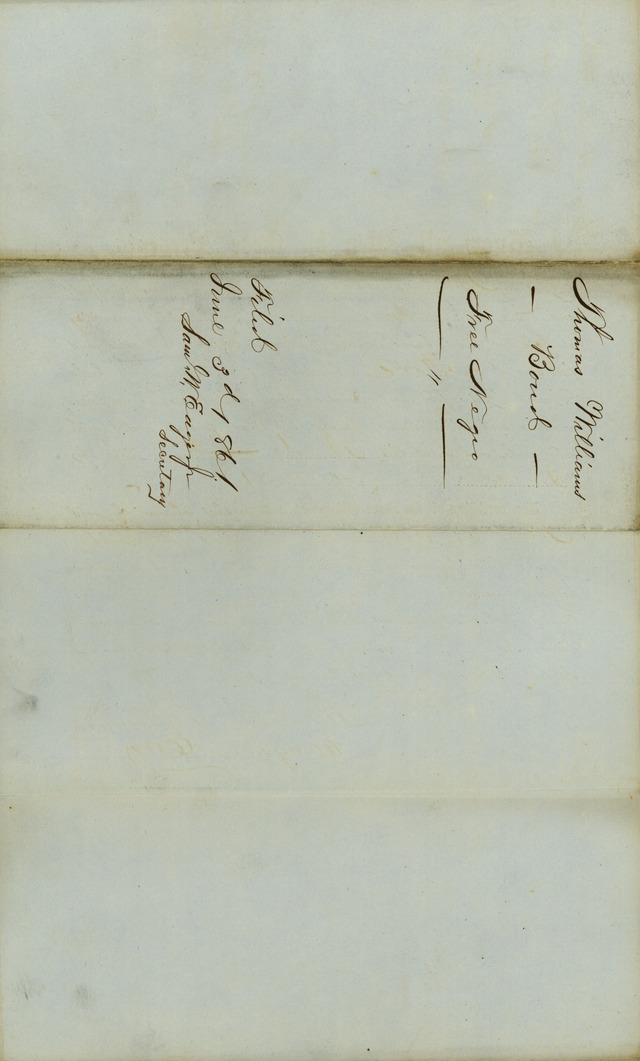 Thomas Williams
— Bond —
Free Negro
— " —
Filed
June 3d 1861
Saml. W. Eager Jr
Secretary